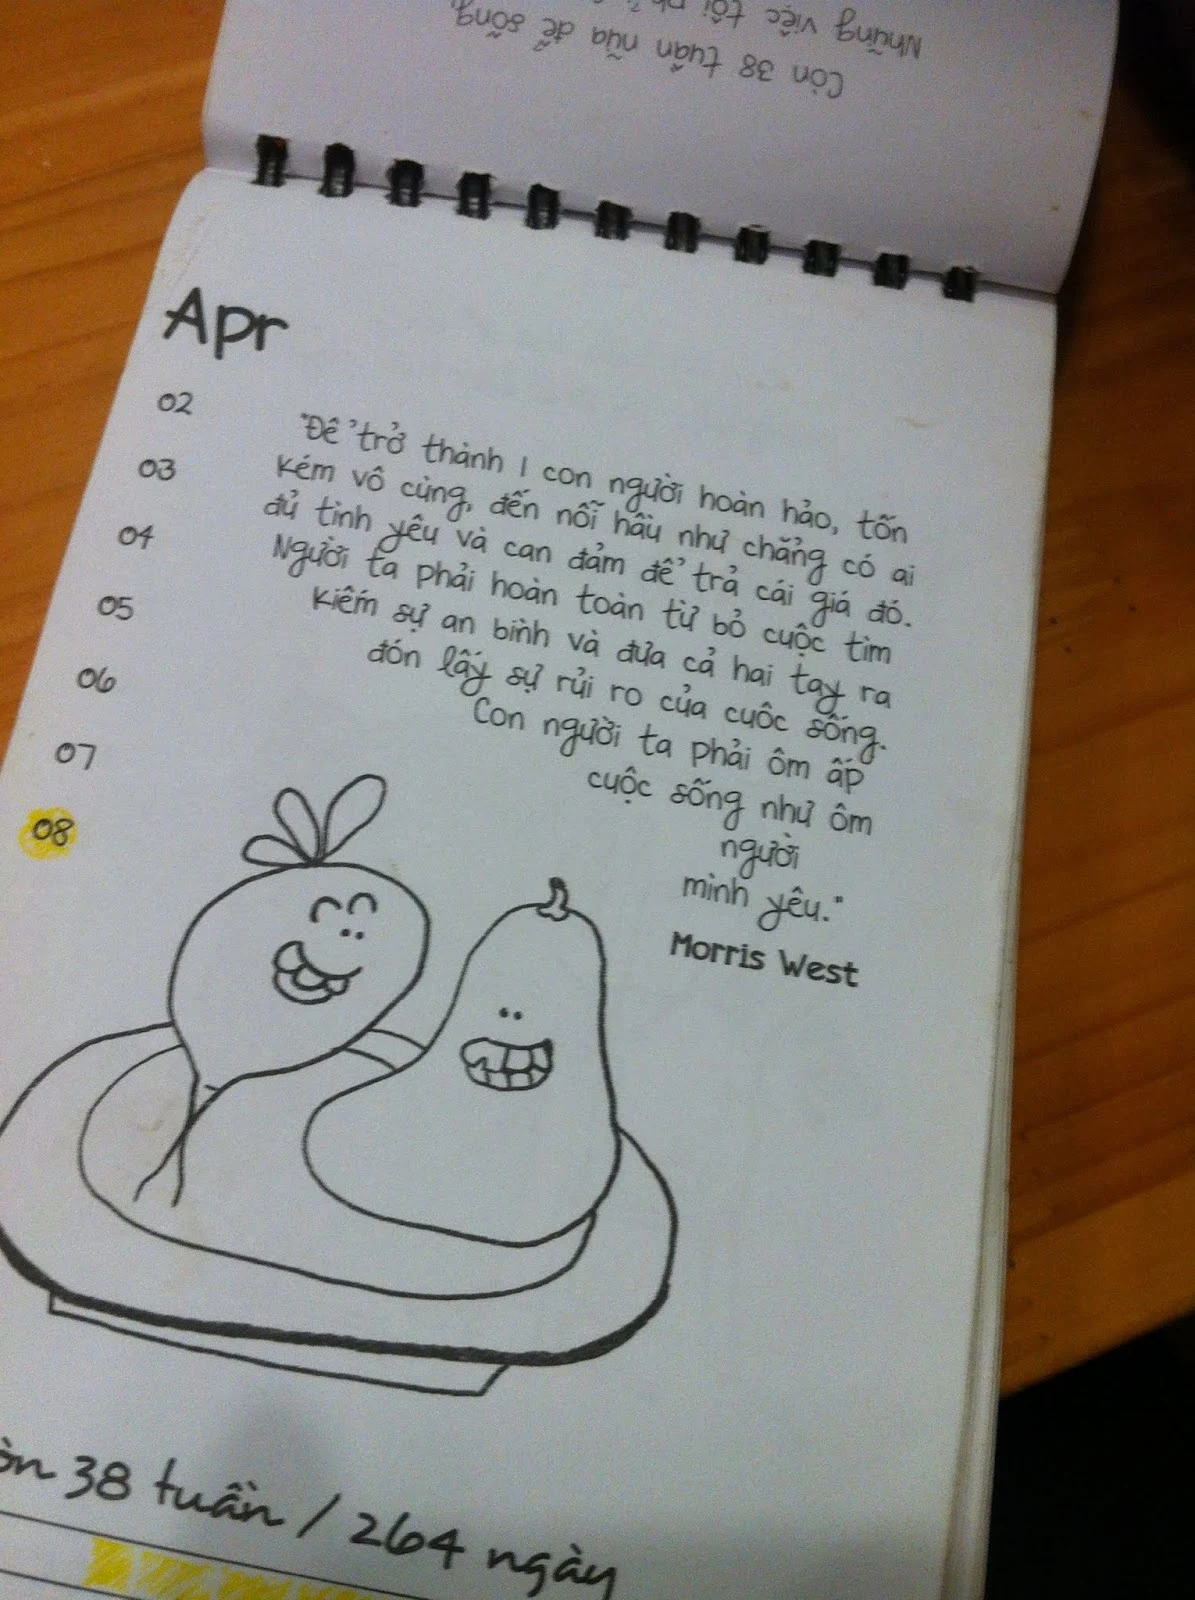 Những việc tôi
Còn 38 tuần nữa để sống
Apr
02
03
04
05
06
07
08
"Để trở thành 1 con người hoàn hảo, tốn
kém vô cùng, đến nỗi hầu như chẳng có ai
đủ tình yêu và can đảm để trả cái giá đó.
Người ta phải hoàn toàn từ bỏ cuộc tìm
kiếm sự an bình và đưa cả hai tay ra
đón lấy sự rủi ro của cuôc sống.
Con người ta phải ôm ấp
cuộc sống như ôm
người
mình yêu."
Morris West
38 tuần / 264 ngày